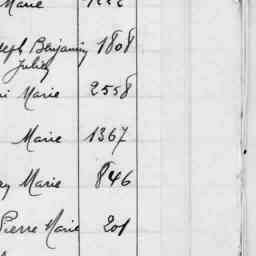 Marie
seph Benjamin 1808
Julien
ri Marie 2558
Marie 1367
ey Marie 846
Pierre Marie 201